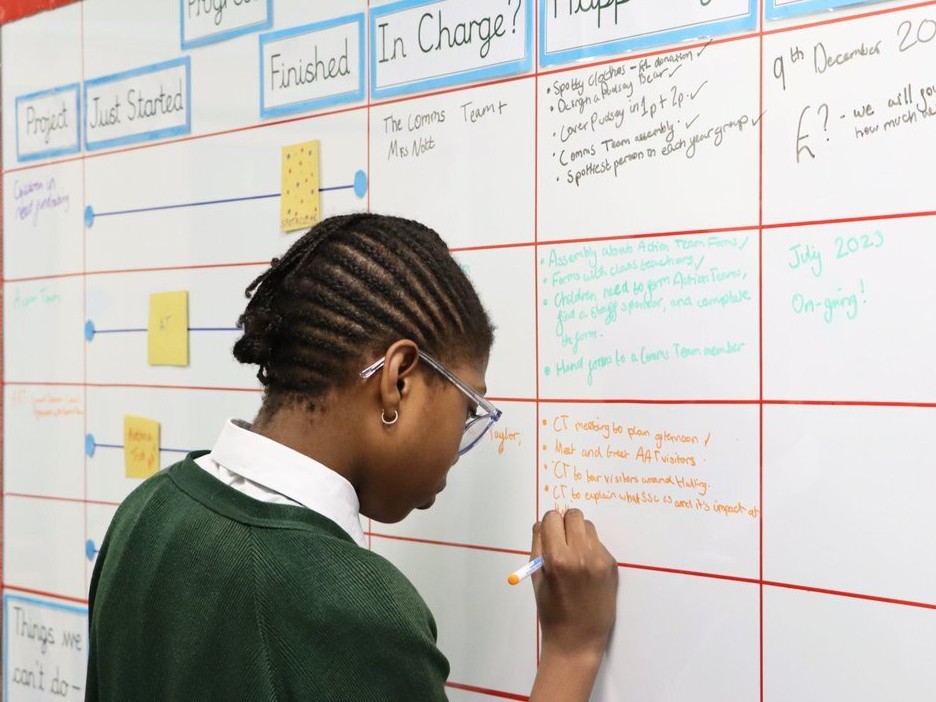 Progress
In Charge?
Finished
Just Started
Project
Children in
need fundraising
The Comms Team +
Mrs Nott
• Spotty clothes - £1 donation ✓
• Design a Pudsey Bear ✓
• Cover Pudsey in 1p + 2p ✓
• Comms Team assembly. ✓
• Spottiest person in each year group ✓
9th December 20
£? - we will
how much
Action Team
AT
• Assembly about Action Team Forms ✓
• Forms with class teachers ✓
• Children need to form Action Teams,
find a staff sponsor, and complete
the form.
• Hand forms to a Comms Team member
July 2023
On-going!
Taylor,
• CT meeting to plan afternoon ✓
• Meet and Greet AAT visitors.
• CT to tour visitors around Halling.
• CT to explain what SSLC is and it's impact at
Things we
can't do -